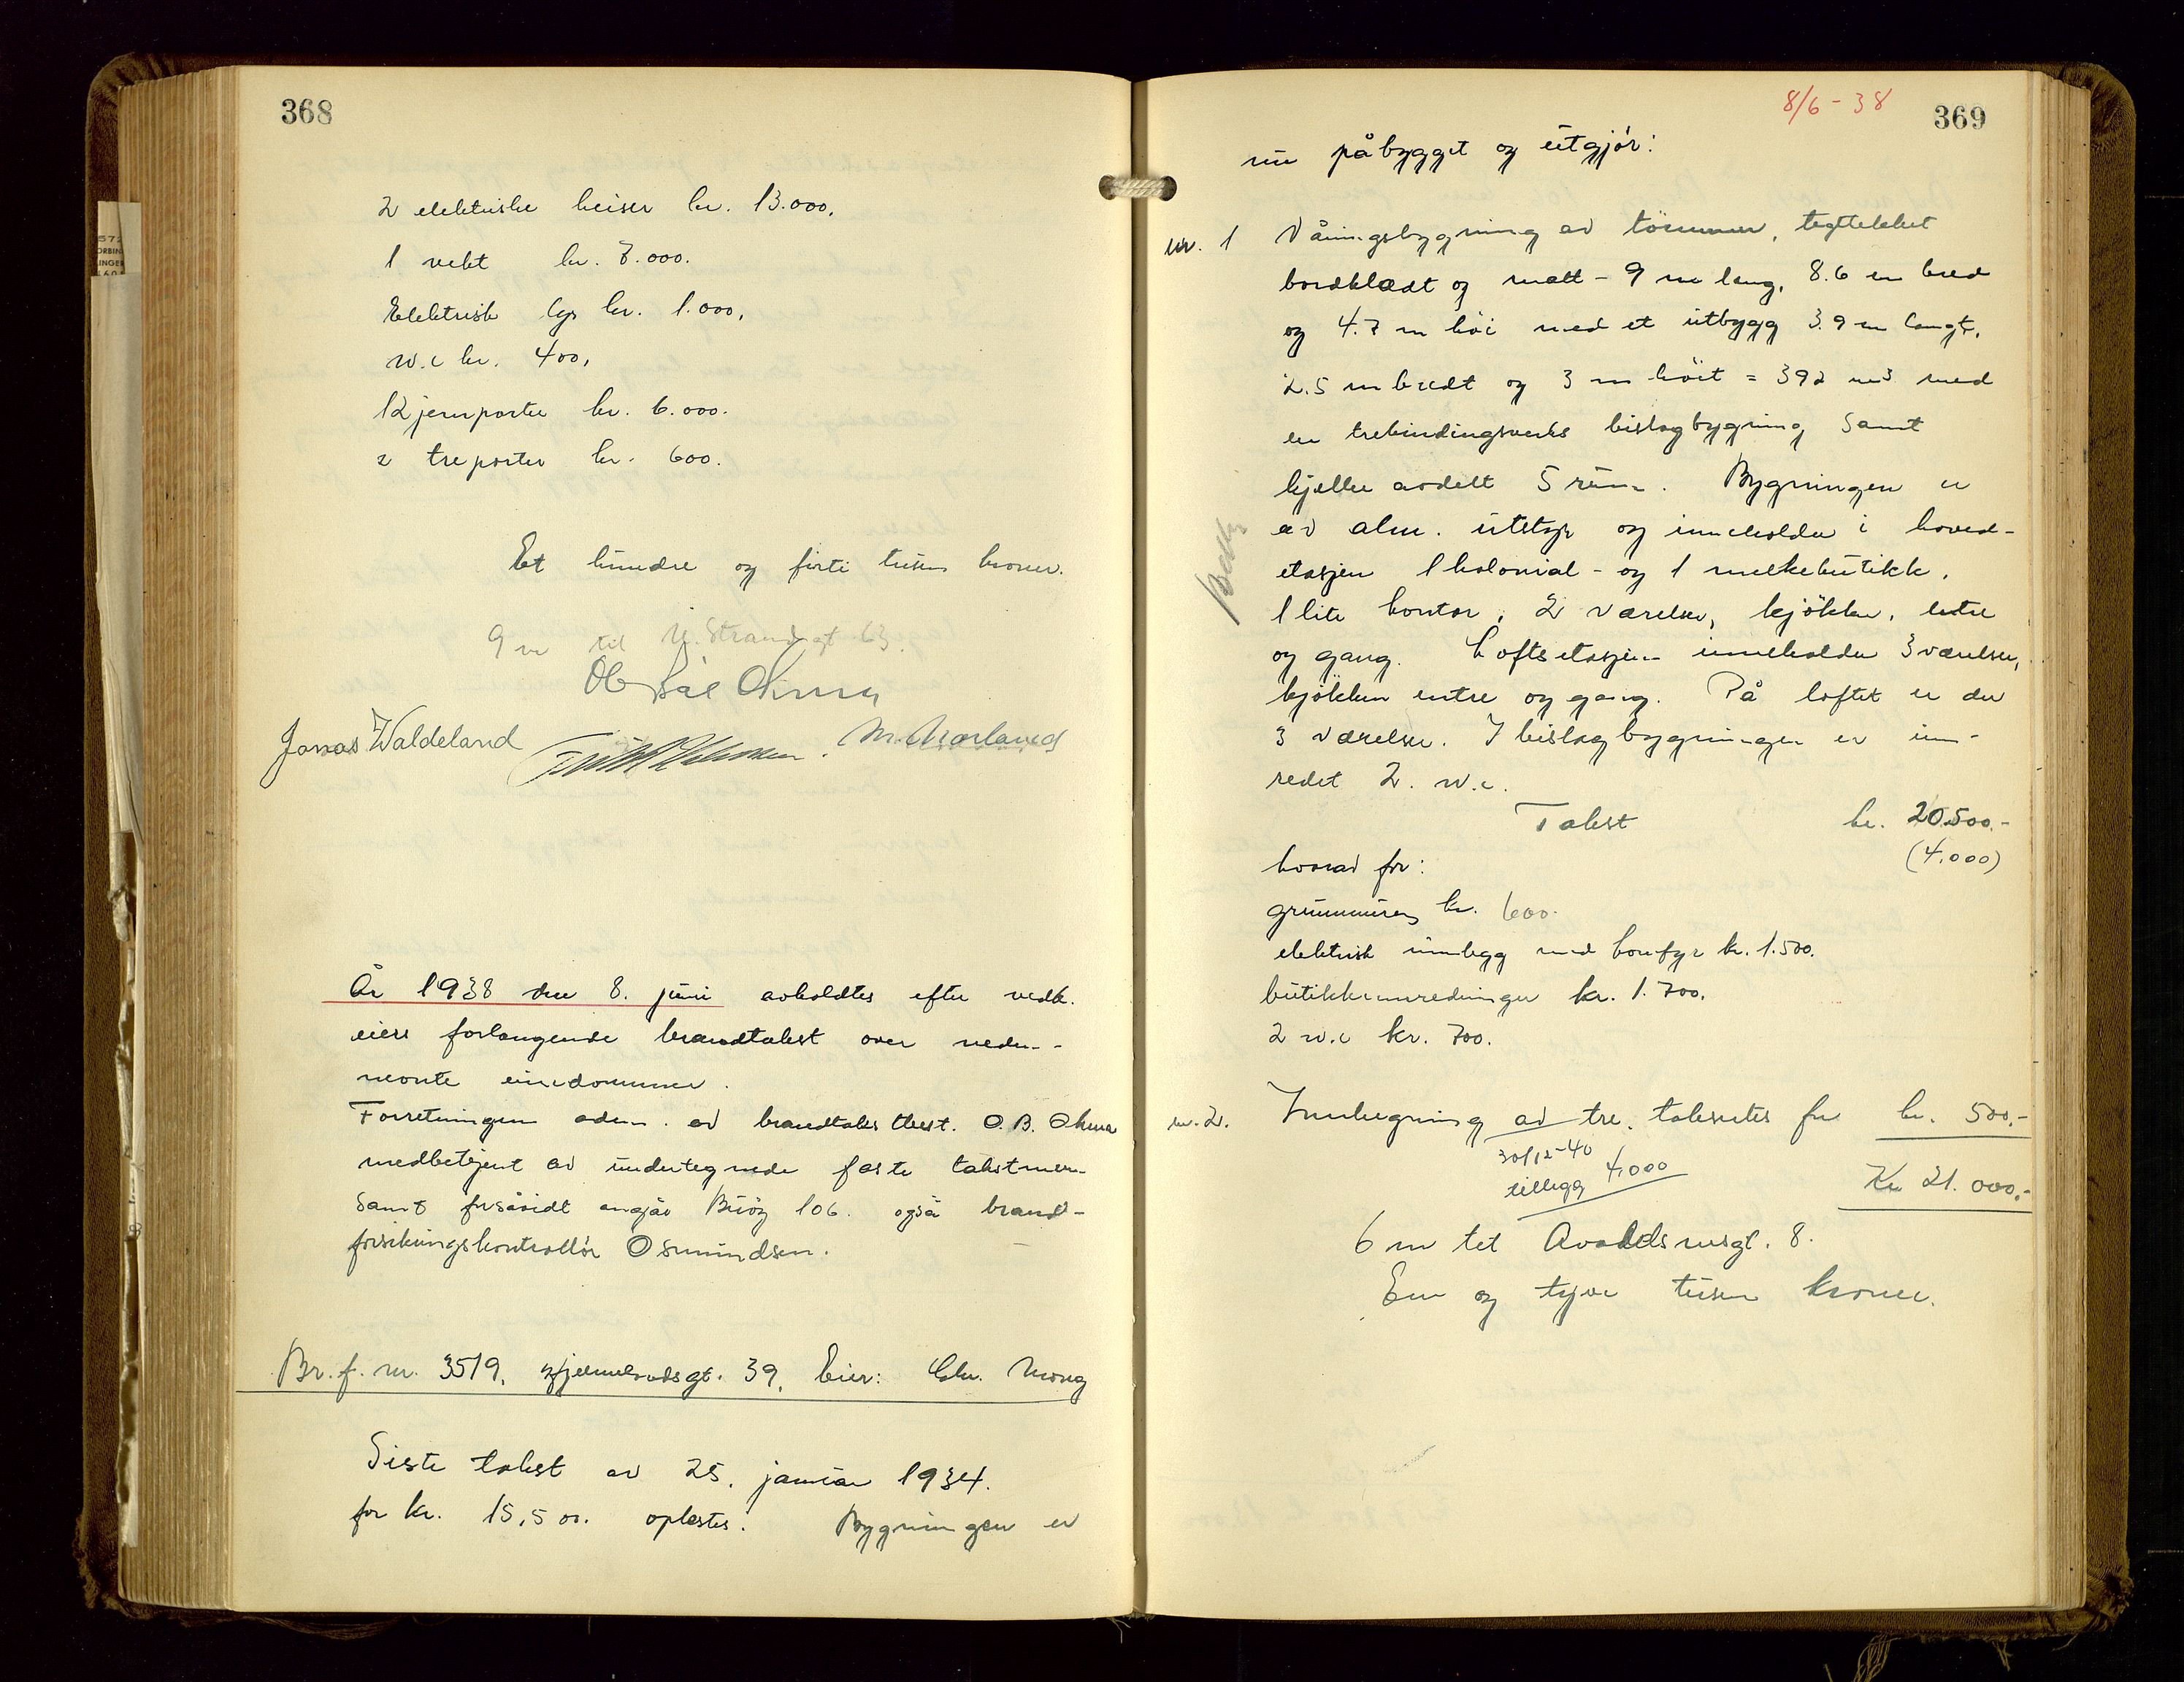 368
2 elektriske heiser kr. 13.000,
1 vekt kr. 7.000.
Elektrisk lys kr. 1.000,
w.c kr. 400,
12 jernporter kr. 6.000.
2 treporter kr. 600.
Et hundre og firti tusen kroner.
9 m til N. Strandgt 63.
Jonas Waldeland
År 1938 den 8. juni avholdtes efter vedk.
eiers forlangende brandtakst over neden-
nevnte eiendommer.
Forretningen adm. av brandtakstbest. O.B. Okma
medbetjent av undertegnede faste takstmen
samt forsåvidt angår Buög 106. også brand-
forsikringskontrollör Osmundsen.
Br. f. nr. 3519, Hjelmelandsgt. 39, Eier: Chr. Mong
Siste takst av 25. januar 1934.
for kr. 15,500. oplestes. Bygningen er
8/6 - 38
369
nu påbygget og utgjör:
nr. 1 Våningsbygning av tömmer, tegltekket
bordklædt og malt - 9 m lang, 8.6 m bred
og 4.7 m höi med et utbygg 3.9 m langt,
2.5 m bredt og 3 m höit = 392 m3 med
en trebindingsverks bislagbygning samt
kjeller avdelt 5 rum. Bygningen er
av alm. utstyr og inneholder i hoved-
etasjen 1 kolonial- og 1 melkebutikk,
1 lite kontor, 2 værelser, kjökken, entre
og gang. Loftsetasjen inneholder 3 værelser,
kjökken entre og gang. På loftet er der
3 værelser. I bislagbygningen er inn-
redet 2. w.c.
Takst kr. 20.500.-
(4.000)
hvorav for:
grunnmuren kr. 600.
elektrisk innlegg med komfyr kr. 1.500.
butikkinnredninger kr. 1.700.
2 w.c kr. 700.
nr. 2. Innhegning av tre, takseres for kr. 500,-
30/12-40
tillegg 4.000
Kr 21.000,-
6 m tet Avaldsnesgt. 8.
En og tyve tusen kroner.